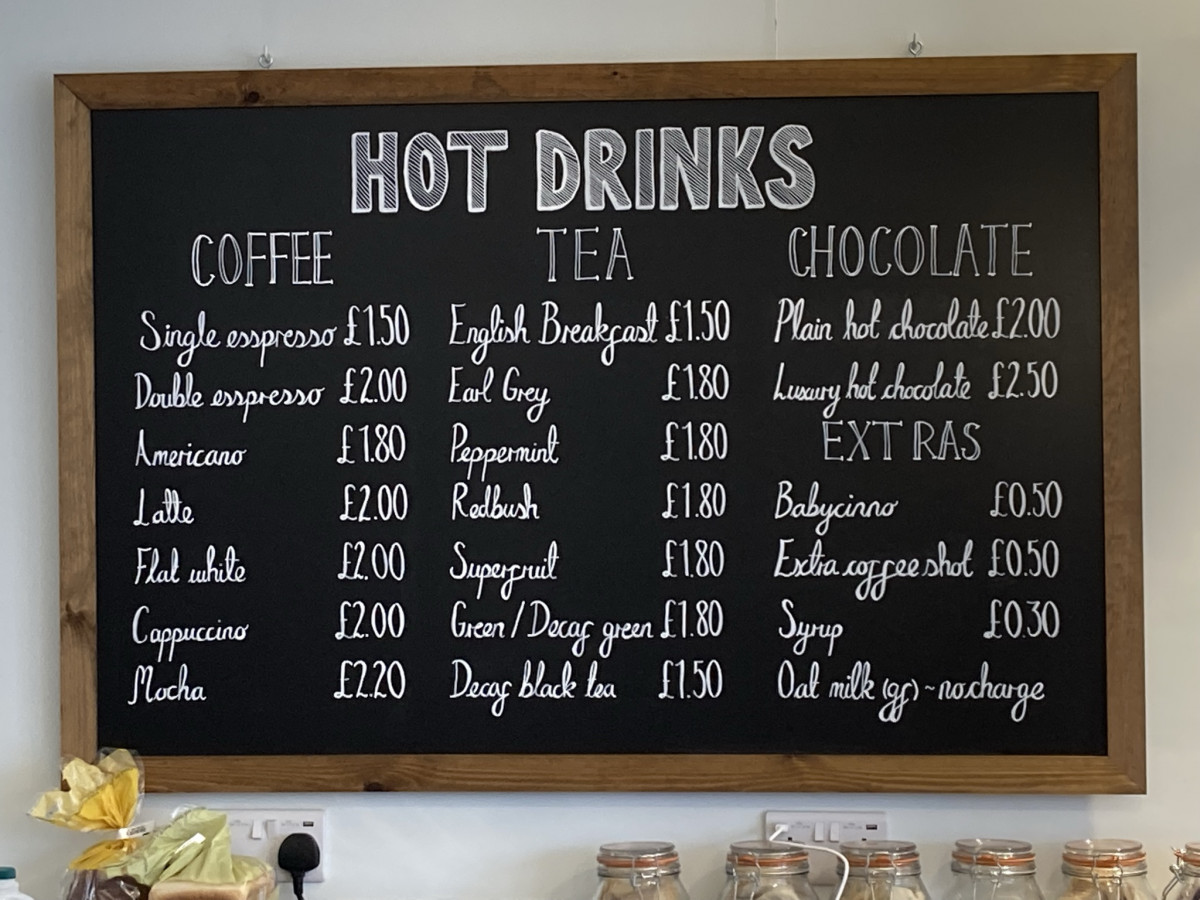 HOT DRINKS
COFFEE
Single esspresso £1.50
Double esspresso £2.00
Americano £1.80
Latte £2.00
Flat white £2.00
Cappuccino £2.00
Mocha £2.20
TEA
English Breakfast £1.50
Earl Grey £1.80
Peppermint £1.80
Redbush £1.80
Superfruit £1.80
Green / Decaf green £1.80
Decaf black tea £1.50
CHOCOLATE
Plain hot chocolate £2.00
Luxury hot chocolate £2.50
EXTRAS
Babycinno £0.50
Extra coffee shot £0.50
Syrup £0.30
Oat milk (gf) ~ no charge